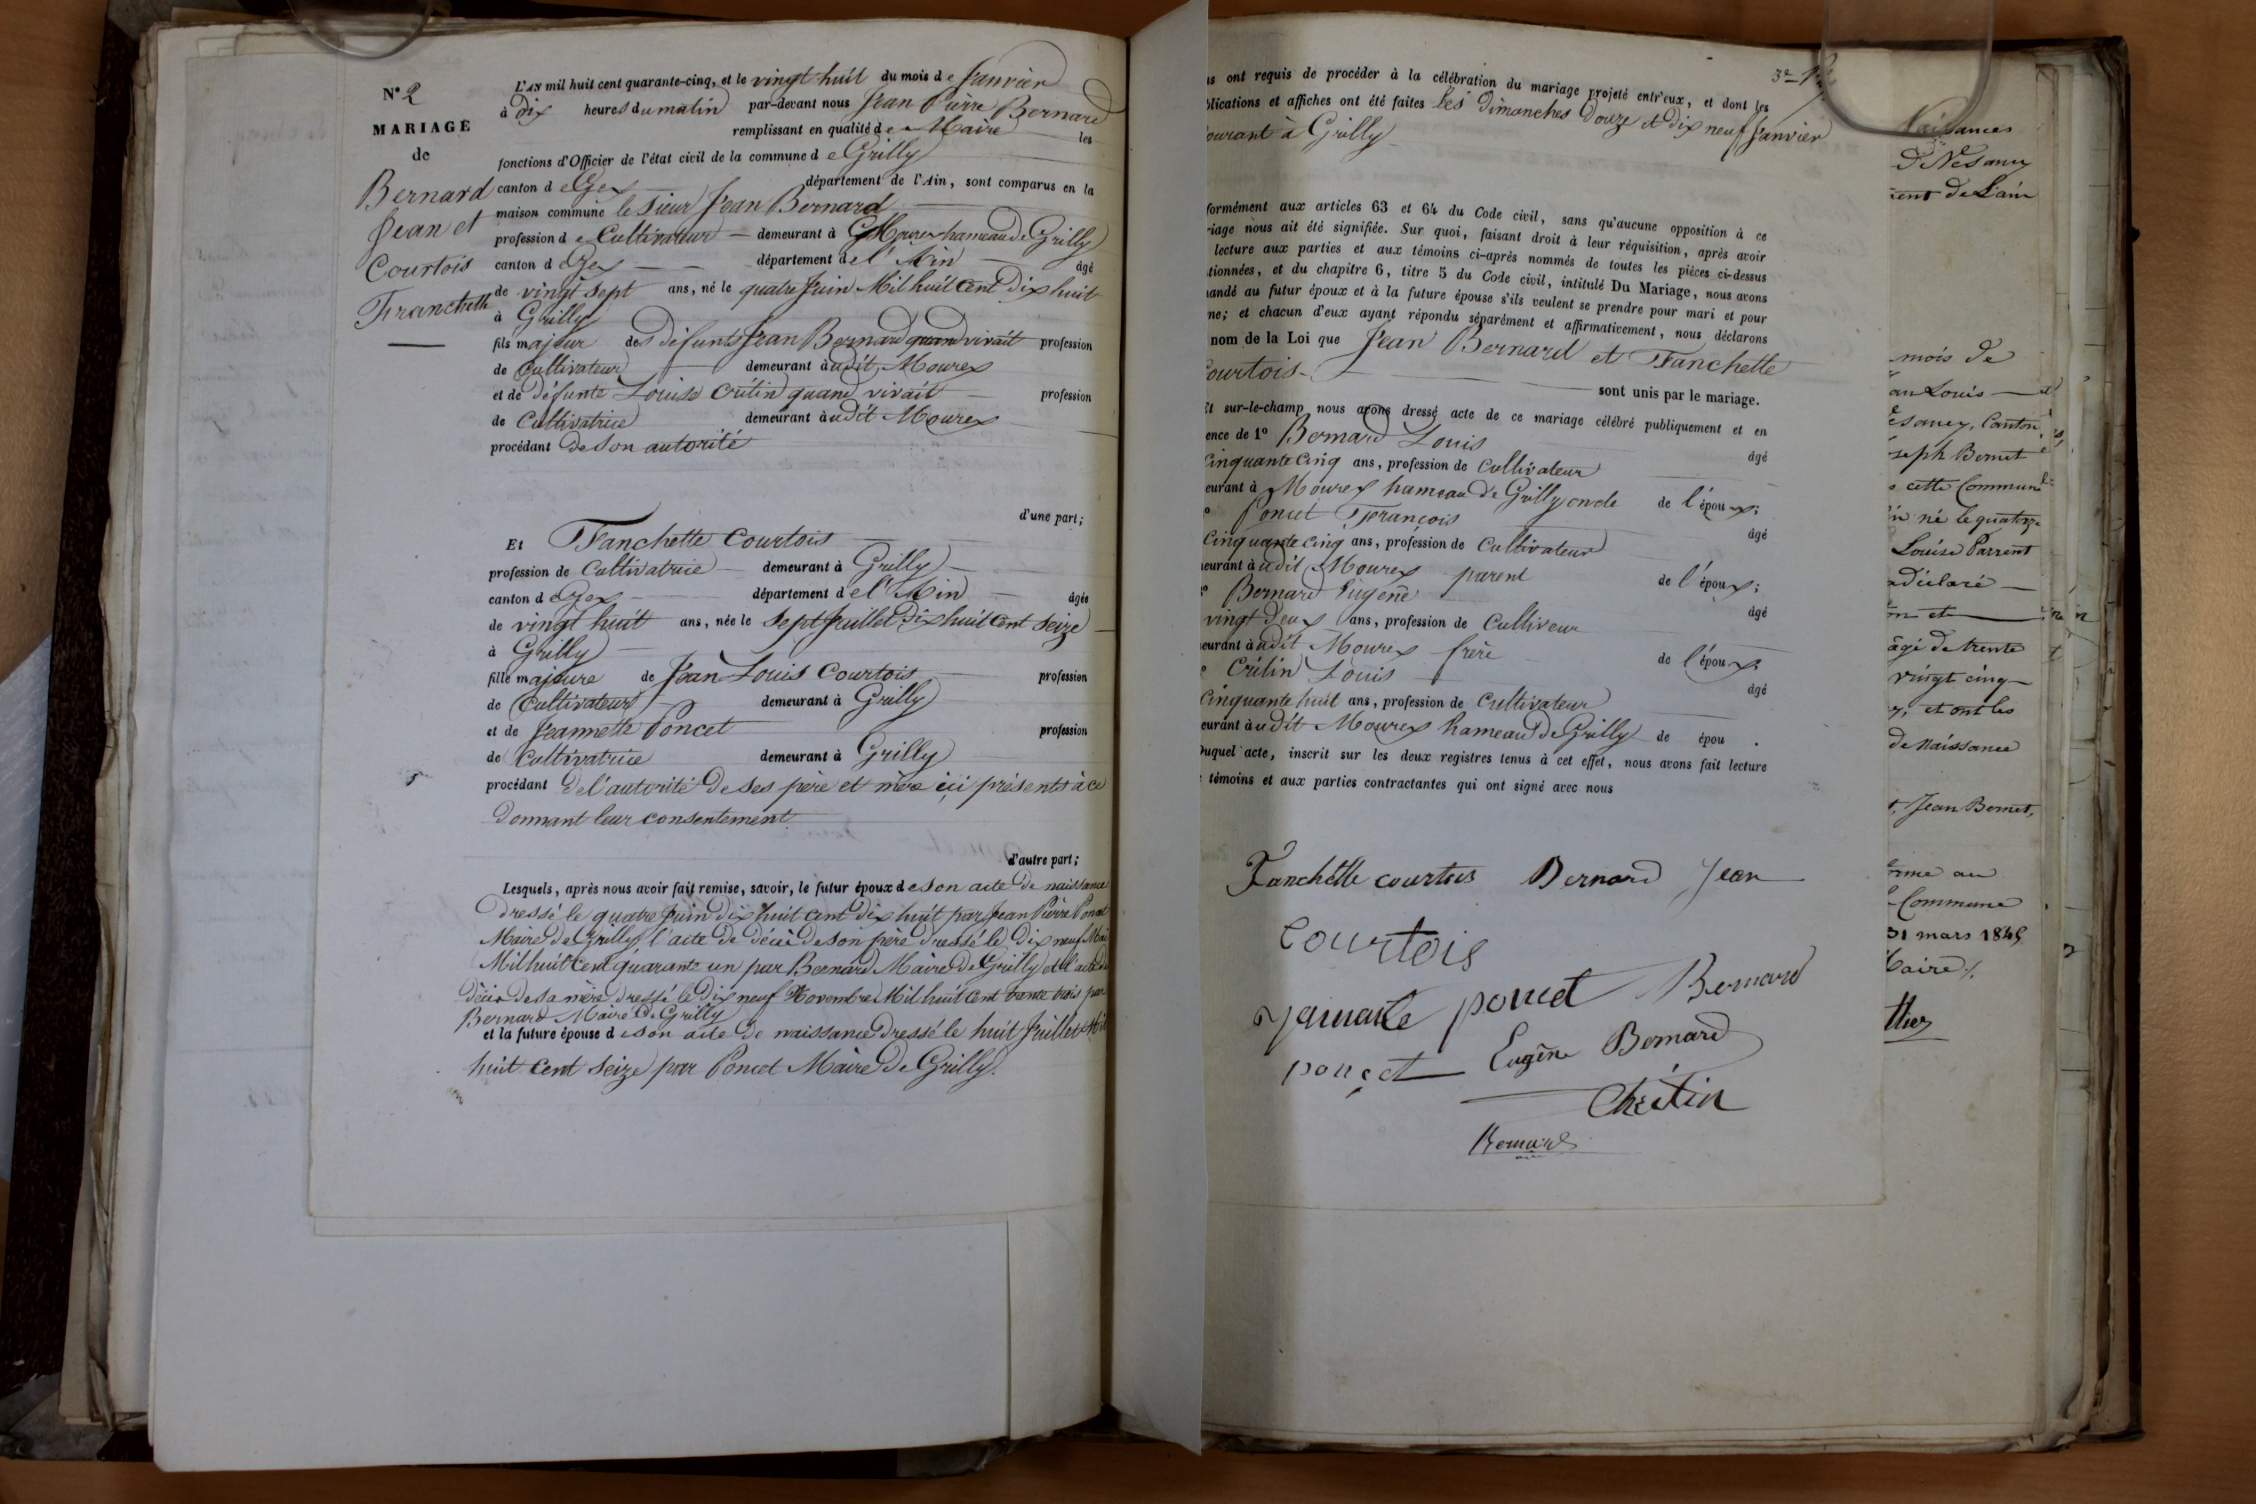 N° 2
MARIAGE
de
Bernard
Jean et
Courtois
Franchette
L'AN mil huit cent quarante-cinq, et le vingt huit du mois de Janvier
à dix heures du matin par-devant nous Jean Pierre Bernard
remplissant en qualité de Maire les
fonctions d'Officier de l'état civil de la commune de Grilly
canton de Gex département de l'Ain, sont comparus en la
maison commune le Sieur Jean Bernard
profession de Cultivateur demeurant à Mourex hameau de Grilly
canton de Gex département de l'Ain âgé
de vingt sept ans, né le quatre Juin Mil huit cent dix huit
à Grilly
fils majeur des défunts Jean Bernard quand vivait profession
de Cultivateur demeurant audit Mourex
et de défunte Louise Crétin quand vivait profession
de Cultivatrice demeurant audit Mourex
procédant de son autorité
d'une part;
Et Fanchette Courtois
profession de Cultivatrice demeurant à Grilly
canton de Gex département de l'Ain âgée
de vingt huit ans, née le Sept Juillet Dix huit cent Seize
à Grilly
fille majeure de Jean Louis Courtois profession
de Cultivateur demeurant à Grilly
et de Jeannette Poncet profession
de Cultivatrice demeurant à Grilly
procédant de l'autorité de ses père et mère ici présents à ce
donnant leur consentement
d'autre part;
Lesquels, après nous avoir fait remise, savoir, le futur époux de son acte de naissance
dressé le quatre Juin Dix huit cent Dix huit par Jean Pierre Poncet
Maire de Grilly, l'acte de décès de son père dressé le dix neuf Mai
Mil huit cent quarante un par Bernard Maire de Grilly et l'acte de
décès de sa mère dressé le dix neuf Novembre Mil huit cent trente trois par
Bernard Maire de Grilly
et la future épouse de son acte de naissance dressé le huit Juillet Mil
huit cent Seize par Poncet Maire de Grilly.
3e
ont requis de procéder à la célébration du mariage projeté entr'eux, et dont les
blications et affiches ont été faites les dimanches Douze et dix neuf Janvier
courant à Grilly
formément aux articles 63 et 64 du Code civil, sans qu'aucune opposition à ce
riage nous ait été signifiée. Sur quoi, faisant droit à leur réquisition, après avoir
lecture aux parties et aux témoins ci-après nommés de toutes les pièces ci-dessus
tionnées, et du chapitre 6, titre 5 du Code civil, intitulé Du Mariage, nous avons
mandé au futur époux et à la future épouse s'ils veulent se prendre pour mari et pour
me; et chacun d'eux ayant répondu séparément et affirmativement, nous déclarons
nom de la Loi que Jean Bernard et Fanchette
Courtois
sont unis par le mariage.
Et sur-le-champ nous avons dressé acte de ce mariage célébré publiquement et en
ence de 1° Bernard Louis âgé
Cinquante Cinq ans, profession de Cultivateur
eurant à Mourex hameau de Grilly oncle de l'époux;
Poncet François âgé
Cinquante cinq ans, profession de Cultivateur
eurant audit Mourex parent de l'époux;
Bernard Eugène âgé
vingt deux ans, profession de Cultiveur
eurant audit Mourex frère de l'époux;
Crétin Louis âgé
Cinquante huit ans, profession de Cultivateur
eurant audit Mourex hameau de Grilly de épou .
Duquel acte, inscrit sur les deux registres tenus à cet effet, nous avons fait lecture
témoins et aux parties contractantes qui ont signé avec nous
Fanchette courtois Bernard Jean
Courtois
poncet Bernard
ponçet Eugène Bernard
Chrétin
Bernard
Naissances
ent de L'ain
mois de
an Louis
Canton
seph Bornet
cette Commune
né le quatorze
Louise Parrent
déclaré
et
âgé de trente
vingt cinq
et ont les
de naissance
Jean Bornet,
orme au
Commune
31 mars 1845
Maire